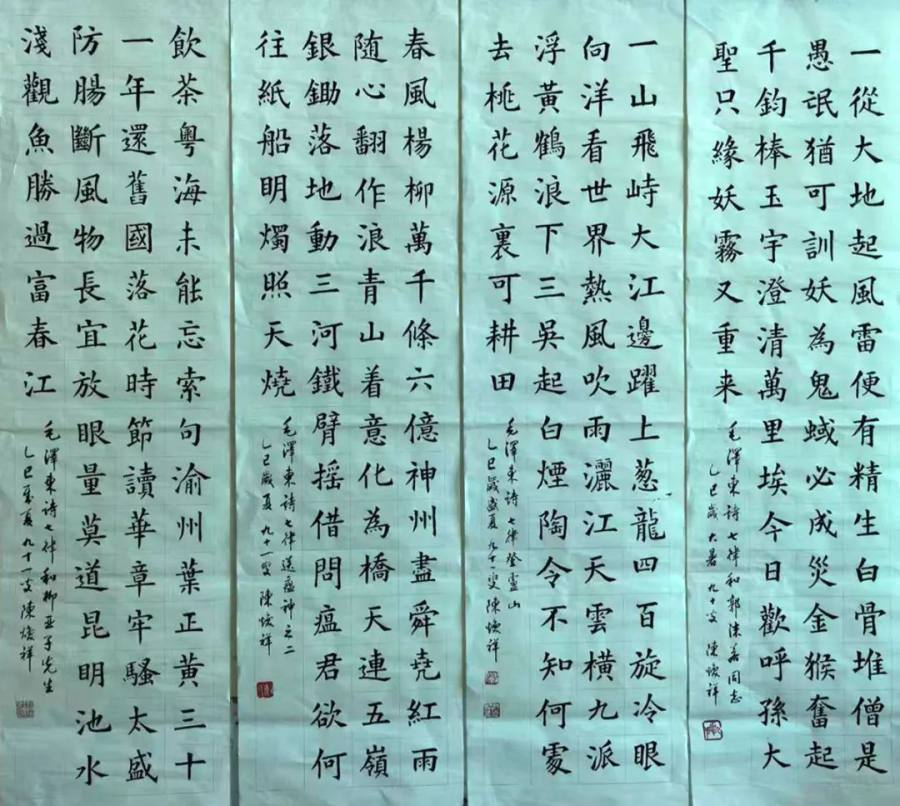 一從大地起風雷便有精生白骨堆僧是
愚氓猶可訓妖為鬼蜮必成災金猴奮起
千鈞棒玉宇澄清萬里埃今日歡呼孫大
聖只緣妖霧又重来
毛澤東詩七律和郭沫若同志
乙巳歲大暑 九十叟 陳煥祥
一山飛峙大江邊躍上葱龍四百旋冷眼
向洋看世界熱風吹雨灑江天雲橫九派
浮黃鶴浪下三吳起白煙陶令不知何處
去桃花源裏可耕田
毛澤東詩七律登廬山
乙巳歲盛夏九十一叟陳煥祥
春風楊柳萬千條六億神州盡舜堯紅雨
隨心翻作浪青山着意化為橋天連五嶺
銀鋤落地動三河鐵臂摇借問瘟君欲何
往紙船明燭照天燒
毛澤東詩七律送瘟神之二
乙巳歲夏九十一叟陳煥祥
飲茶粵海未能忘索句渝州葉正黃三十
一年還舊國落花時節讀華章牢騷太盛
防腸斷風物長宜放眼量莫道昆明池水
淺觀魚勝過富春江
毛澤東詩七律和柳亞子先生
乙巳夏九十一叟陳煥祥